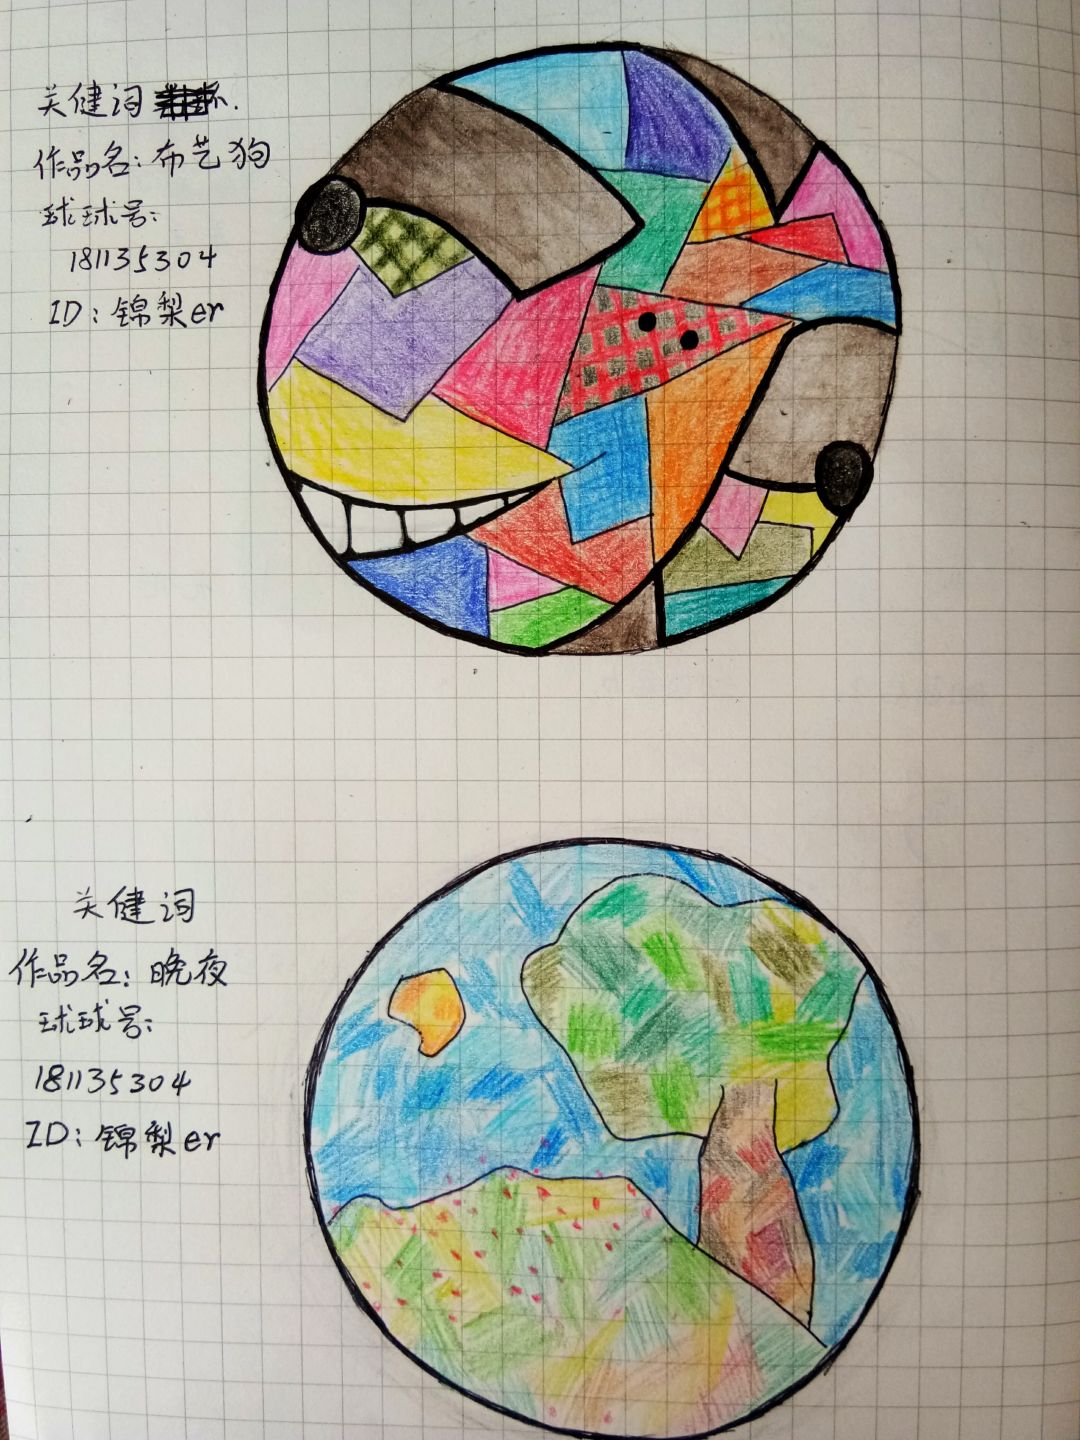 关健词
作品名：布艺狗
球球号：
181135304
ID：锦梨er
关健词
作品名：晚夜
球球号：
181135304
ID：锦梨er